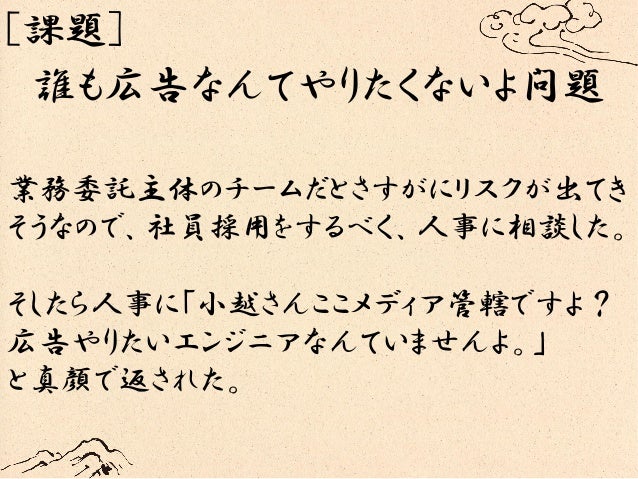 [課題]
誰も広告なんてやりたくないよ問題
業務委託主体のチームだとさすがにリスクが出てき
そうなので、社員採用をするべく、人事に相談した。
そしたら人事に「小越さんここメディア管轄ですよ?
広告やりたいエンジニアなんていませんよ。」
と真顔で返された。